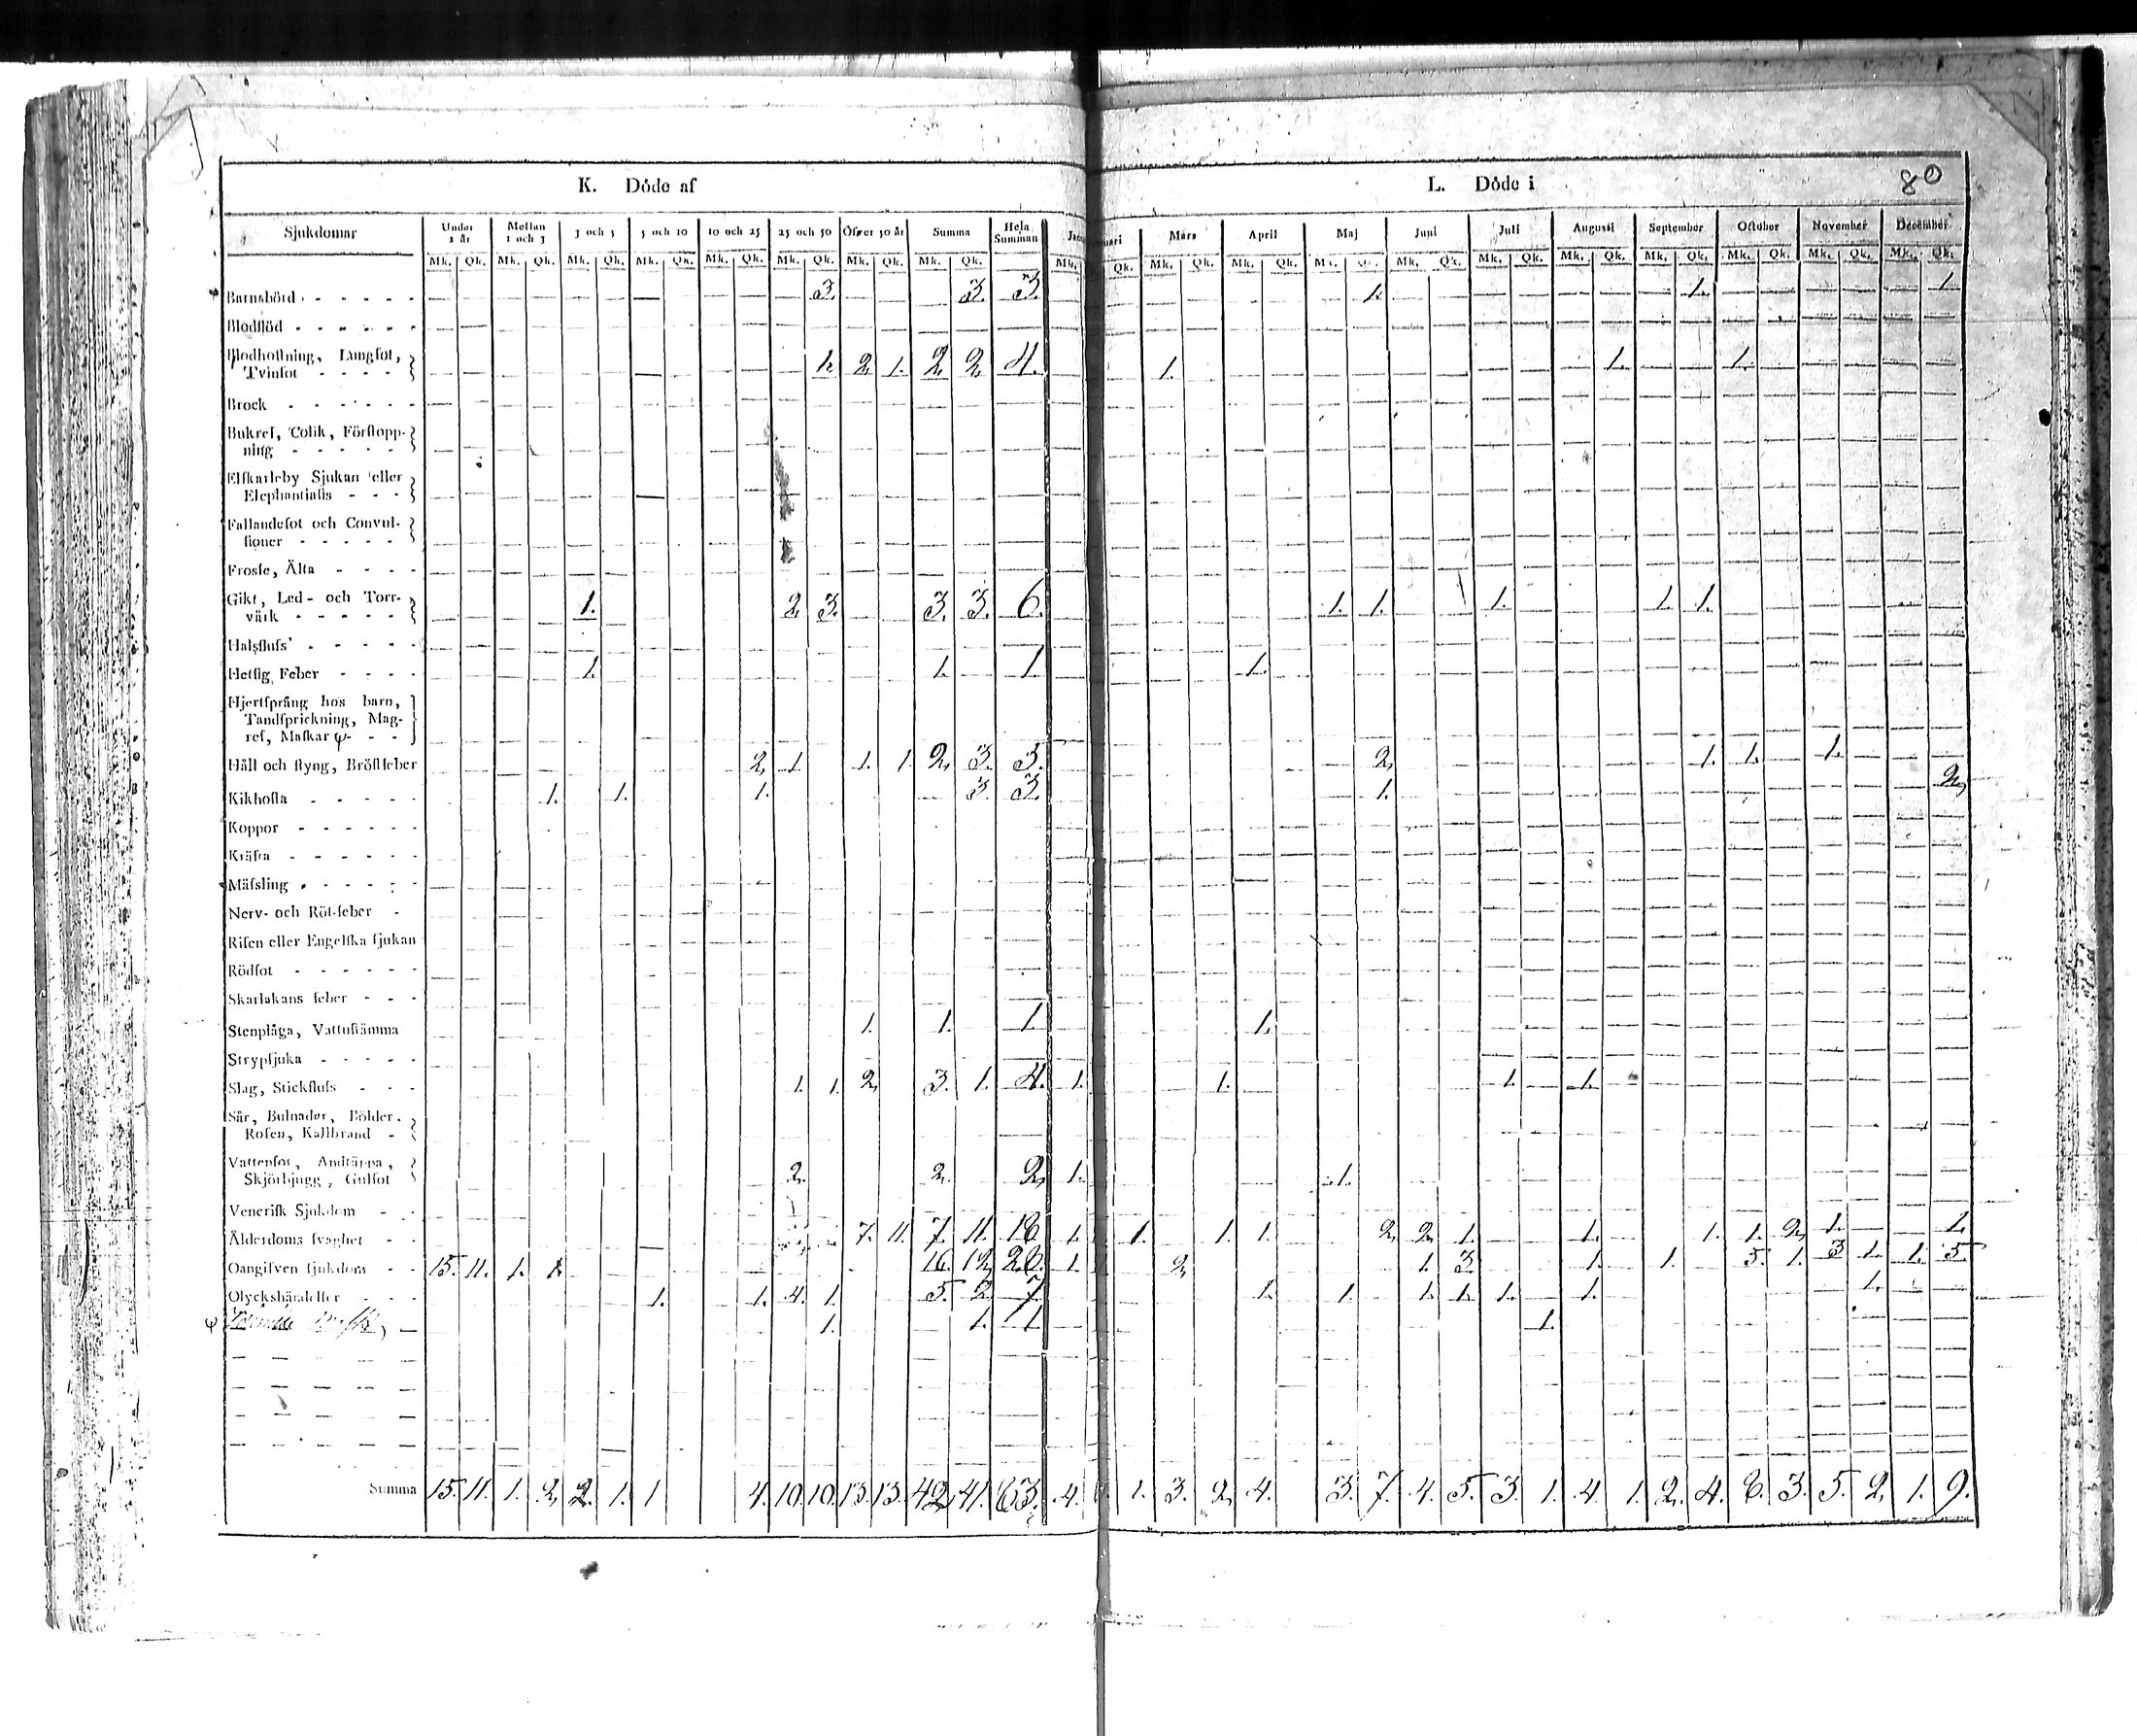 K. Döde af
L. Döde i
80
Sjukdomar Under 1 år Mellan 1 och 3 3 och 5 5 och 10 10 och 25 25 och 50 Öfver 50 år Summa Hela Summan Januari Mars April Maj Juni Juli Augusti September October November December
Mk. Qk. Mk. Qk. Mk. Qk. Mk. Qk. Mk. Qk. Mk. Qk. Mk. Qk. Mk. Qk. Mk. Qk. Mk. Qk. Mk. Qk. Mk. Qk. Mk. Qk. Mk. Qk. Mk. Qk. Mk. Qk. Mk. Qk. Mk. Qk. Mk. Qk.
Barnsbörd 3. 3. 3. 1. 1. 1
Blodflöd
Blodhostning, Lungsot,
Tvinsot 1. 2. 1. 2. 2. 4. 1. 1. 1.
Brock
Bukref, Colik, Förstopp-
ning
Elfkarleby Sjukan eller
Elephantiasis
Fallandesot och Convul-
sioner
Frosse, Älta
Gikt, Led- och Torr-
värk 1. 2. 3. 3. 3. 6. 1. 1. 1. 1. 1.
Halsfluss
Hetsig Feber 1. 1. 1 1.
Hjertsprång hos barn,
Tandsprickning, Mag-
ref, Maskar ψ
Håll och styng, Bröstfeber 2. 1. 1. 1. 2. 3. 3. 2. 1. 1. 1.
Kikhosta 1. 1. 1. 3. 3. 1. 2.
Koppor
Kräfta
Mässling
Nerv- och Röt-feber
Risen eller Engelska sjukan
Rödsot
Skarlakans feber
Stenplåga, Vattustämma 1. 1. 1. 1.
Strypsjuka
Slag, Stickfluss 1. 1. 2. 3. 1. 4. 1. 1. 1. 1.
Sår, Bulnader, Bölder
Rosen, Kallbrand
Vattensot, Andtäppa,
Skjörbjugg, Gulsot 2. 2. 2. 1. 1.
Venerisk Sjukdom
Ålderdoms svaghet 7. 11. 7. 11. 18. 1. 1. 1. 1. 2. 2. 1. 1. 1. 1. 2. 1. 1.
Oangifven sjukdom 15. 11. 1. 1. 16. 12. 28. 1. 2. 1. 3. 1. 1. 5. 1. 3. 1. 1. 5.
Olyckshändelser 1. 1. 4. 1. 5. 2. 7 1. 1. 1. 1. 1. 1. 1.
ψ 1. 1. 1. 1.
Summa 15. 11. 1. 2. 2. 1. 1 4. 10. 10. 13. 13. 42. 41. 83. 4. 1. 3. 2. 4. 3. 7. 4. 5. 3. 1. 4. 1. 2. 4. 6. 3. 5. 2. 1. 9.